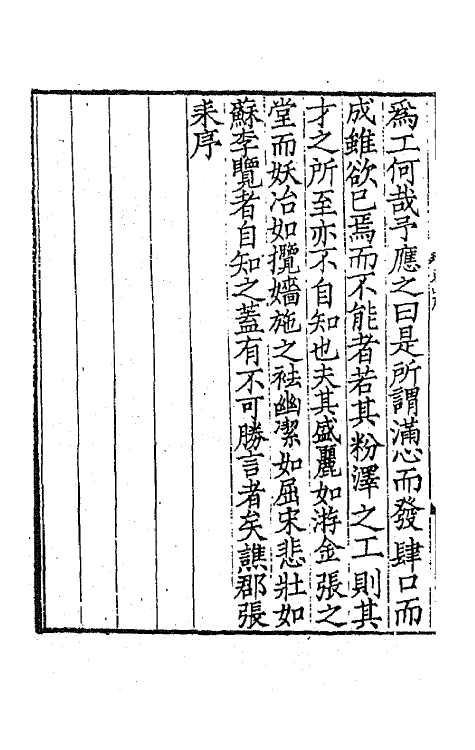 爲工何哉予應之曰是所謂滿心而發肆口而
成雖欲已焉而不能者若其粉澤之工則其
才之所至亦不自知也夫其盛麗如游金張之
堂而妖冶如攬嬙施之袪幽潔如屈宋悲壯如
蘇李覽者自知之蓋有不可勝言者矣譙郡張
耒序